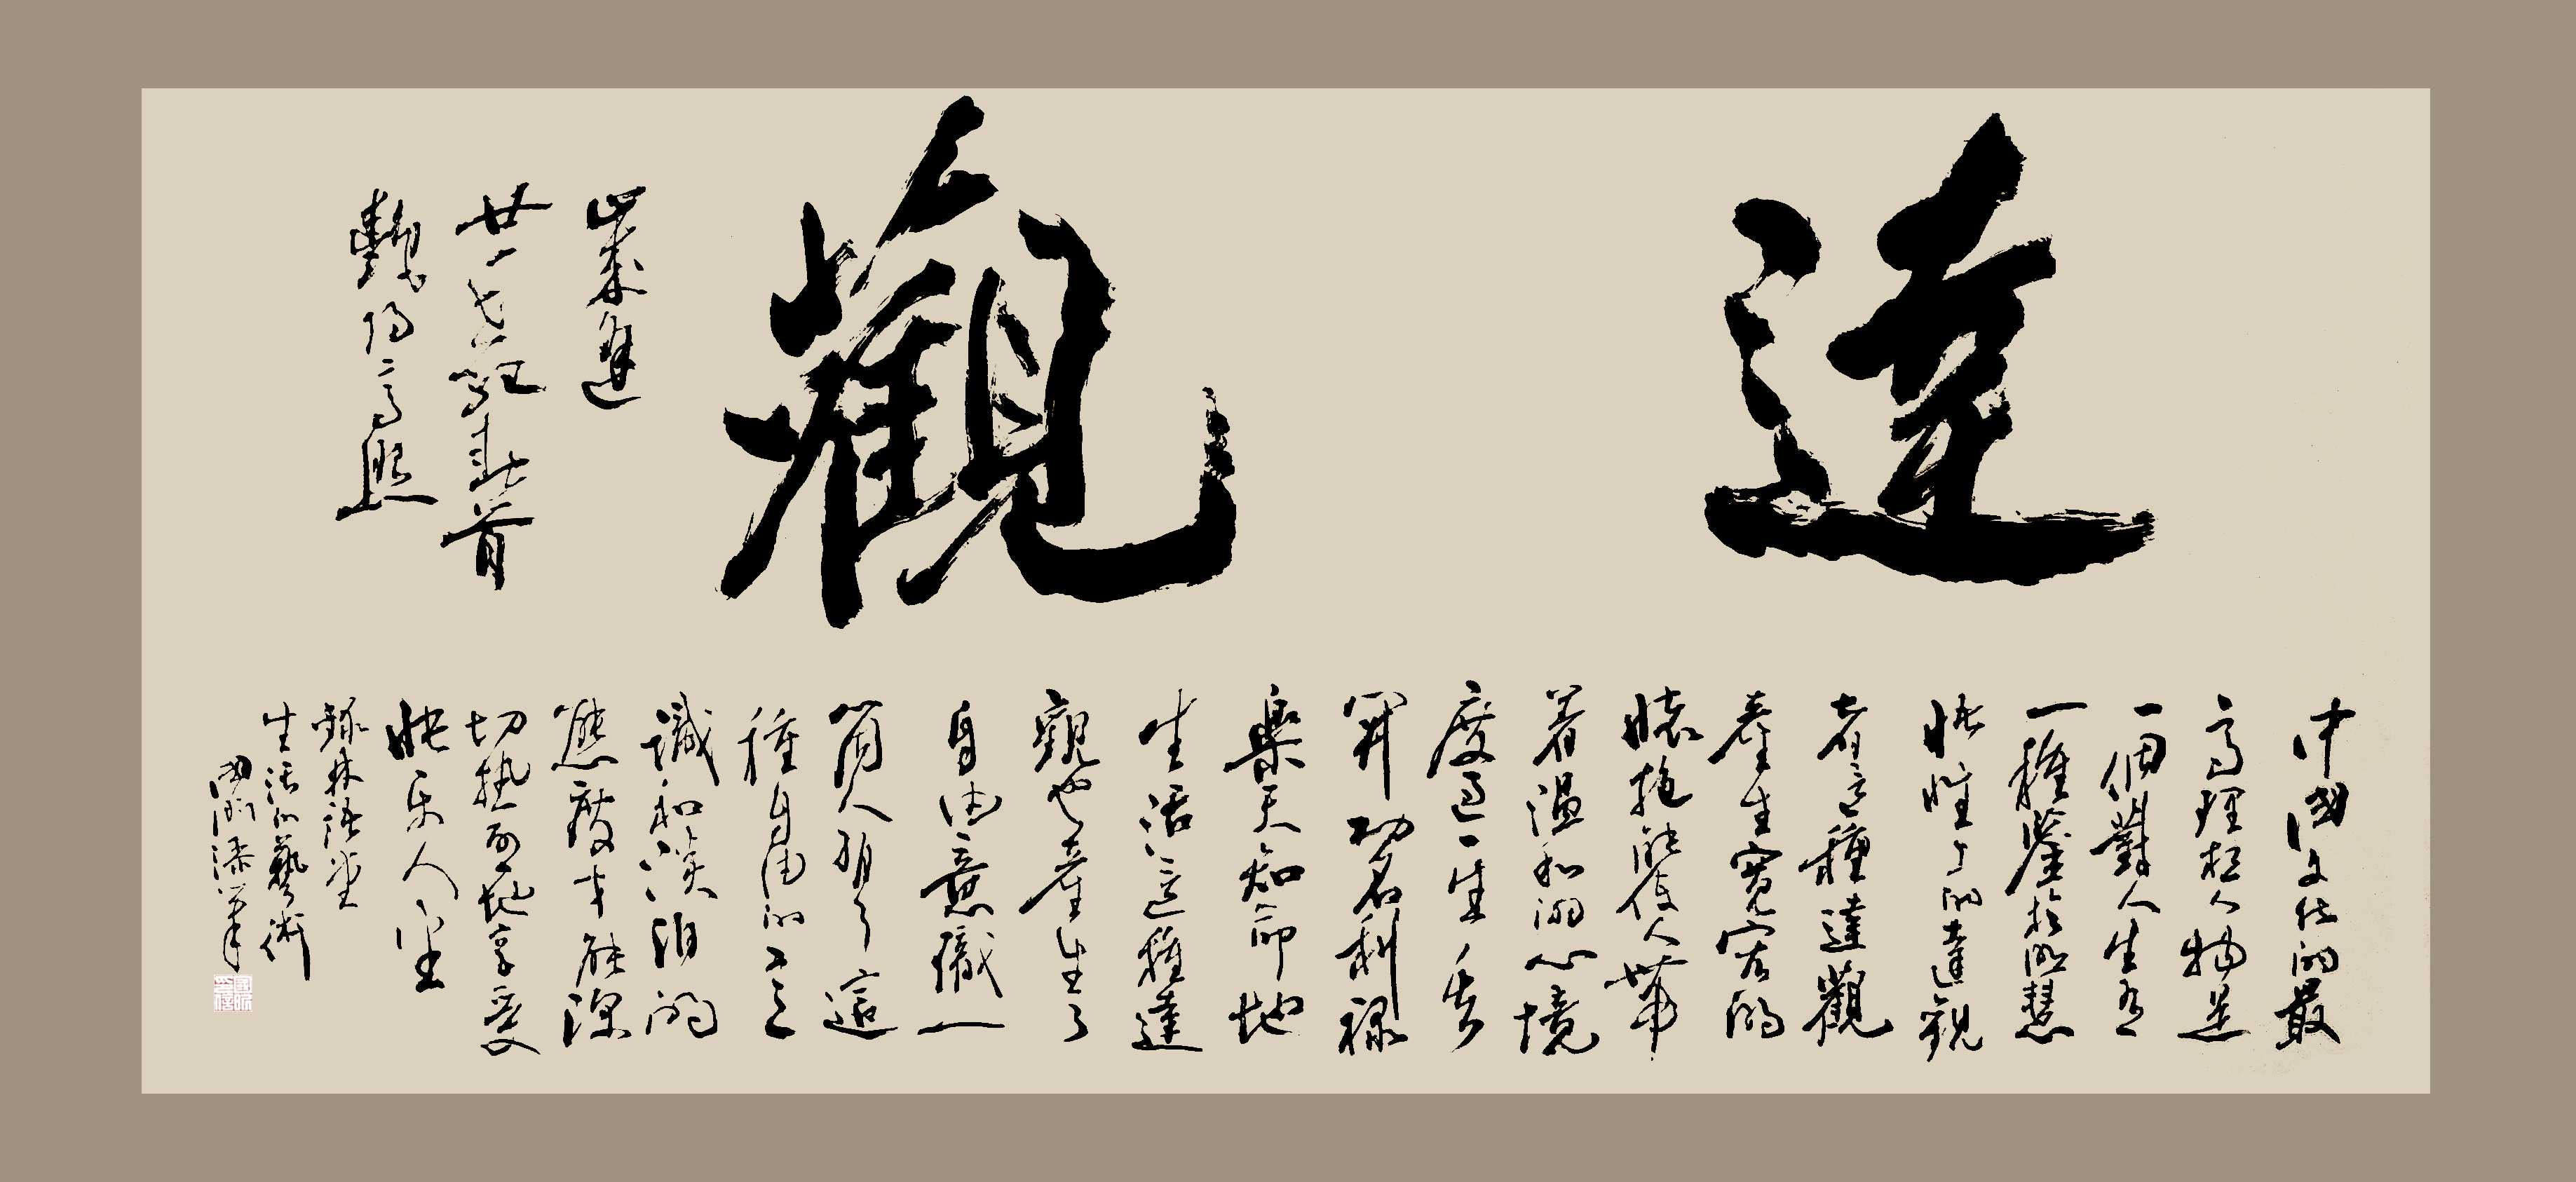 達觀
歲進
廿一世紀春首
艷陽高照
中國文化的最
高理想人物是
一個對人生有
一種鑒於明慧
悟性上的達觀
者這種達觀
產生寬宏的
懷抱能使人帶
着溫和的心境
度過一生丟
開功名利祿
樂天知命地
生活這種達
觀也產生了
自由意識一
箇人有了這
種自由的意
識和淡泊的
態度才能深
切熱烈地享受
快乐人生
錄林語堂
生活的藝術